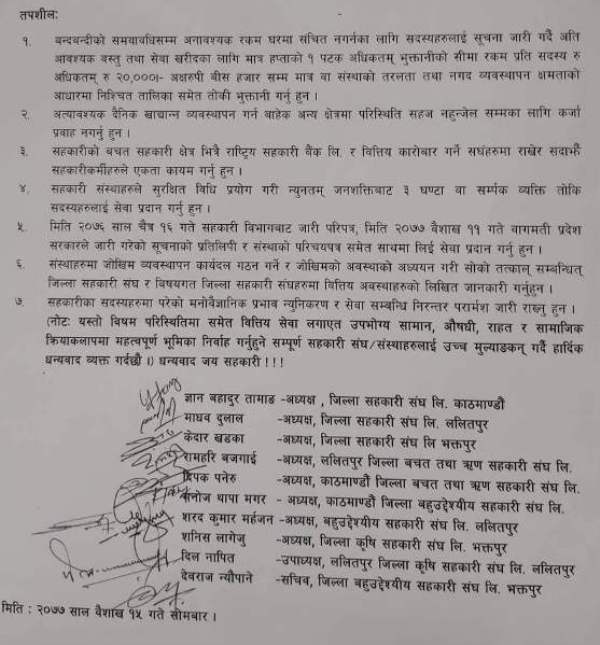 तपशील:
१. बन्दबन्दीको समयावधिसम्म अनावश्यक रकम घरमा संचित नगर्नका लागि सदस्यहरुलाई सूचना जारी गर्दै अति
आवश्यक बस्तु तथा सेवा खरीदका लागि मात्र हप्ताको १ पटक अधिकतम् भुक्तानीको सीमा रकम प्रति सदस्य रु
अधिकतम् रु २०,०००।- अक्षरुपी बीस हजार सम्म मात्र वा संस्थाको तरलता तथा नगद व्यवस्थापन क्षमताको
आधारमा निश्चित तालिका समेत तोकी भुक्तानी गर्नु हुन ।
२. अत्यावश्यक दैनिक खाद्यान्न व्यवस्थापन गर्न बाहेक अन्य क्षेत्रमा परिस्थिति सहज नहुन्जेल सम्मका लागि कर्जा
प्रवाह नगर्नु हुन ।
३. सहकारीको बचत सहकारी क्षेत्र भित्रै राष्ट्रिय सहकारी बैंक लि. र वित्तिय कारोबार गर्ने सघंहरुमा राखेर सदाझैं
सहकारीकर्मीहरुले एकता कायम गर्नु हुन ।
४. सहकारी संस्थाहरुले सुरक्षित विधि प्रयोग गरी न्युनतम् जनशक्तिबाट ३ घण्टा वा सर्म्पक व्यक्ति तोकि
सदस्यहरुलाई सेवा प्रदान गर्नु हुन ।
५. मिति २०७६ साल चैत्र १६ गते सहकारी विभागबाट जारी परिपत्र, मिति २०७७ वैशाख ११ गते वागमती प्रदेश
सरकारले जारी गरेको सूचनाको प्रतिलीपी र संस्थाको परिचयपत्र समेत साथमा लिई सेवा प्रदान गर्नु हुन ।
६. संस्थाहरुमा जोखिम व्यवस्थापन कार्यदल गठन गर्ने र जोखिमको अवस्थाको अध्ययन गरी सोको तत्काल् सम्बन्धित्
जिल्ला सहकारी संघ र विषयगत जिल्ला सहकारी संघहरुमा वित्तिय अवस्थाहरुको लिखित जानकारी गर्नुहुन ।
७. सहकारीका सदस्यहरुमा परेको मनोवैज्ञानिक प्रभाव न्युनिकरण र सेवा सम्बन्धि निरन्तर परार्मश जारी राख्नु हुन ।
(नोटः यस्तो विषम परिस्थितिमा समेत वित्तिय सेवा लगाएत उपभोग्य सामान, औषधी, राहत र सामाजिक
क्रियाकलापमा महत्वपूर्ण भूमिका निर्वाह गर्नुहुने सम्पूर्ण सहकारी संघ/संस्थाहरुलाई उच्च मुल्याङकन् गर्दै हार्दिक
धन्यवाद व्यक्त गर्दछौ ।) धन्यवाद जय सहकारी !!!
ज्ञान बहादुर तामाङ -अध्यक्ष , जिल्ला सहकारी संघ लि. काठमाण्डौ
माधव दुलाल -अध्यक्ष, जिल्ला सहकारी संघ लि. ललितपुर
केदार खडका -अध्यक्ष, जिल्ला सहकारी संघ लि भक्तपुर
रामहरि बजगाई -अध्यक्ष, ललितपुर जिल्ला बचत तथा ऋण सहकारी संघ लि.
दिपक पनेरु -अध्यक्ष, काठमाण्डौं जिल्ला बचत तथा ऋण सहकारी संघ लि.
मनोज थापा मगर - अध्यक्ष, काठमाण्डौं जिल्ला बहुउद्देश्यीय सहकारी संघ लि.
शरद कुमार महर्जन -अध्यक्ष, बहुउद्देश्यीय सहकारी संघ लि. ललितपुर
शनिस लागेजु -अध्यक्ष, जिल्ला कृषि सहकारी संघ लि. भक्तपुर
दिल नापित -उपाध्यक्ष, ललितपुर जिल्ला कृषि सहकारी संघ लि. ललितपुर
देवराज न्यौपाने -सचिव, जिल्ला बहुउद्देश्यीय सहकारी संघ लि. भक्तपुर
मिति : २०७७ साल वैशाख १५ गते सोमबार ।